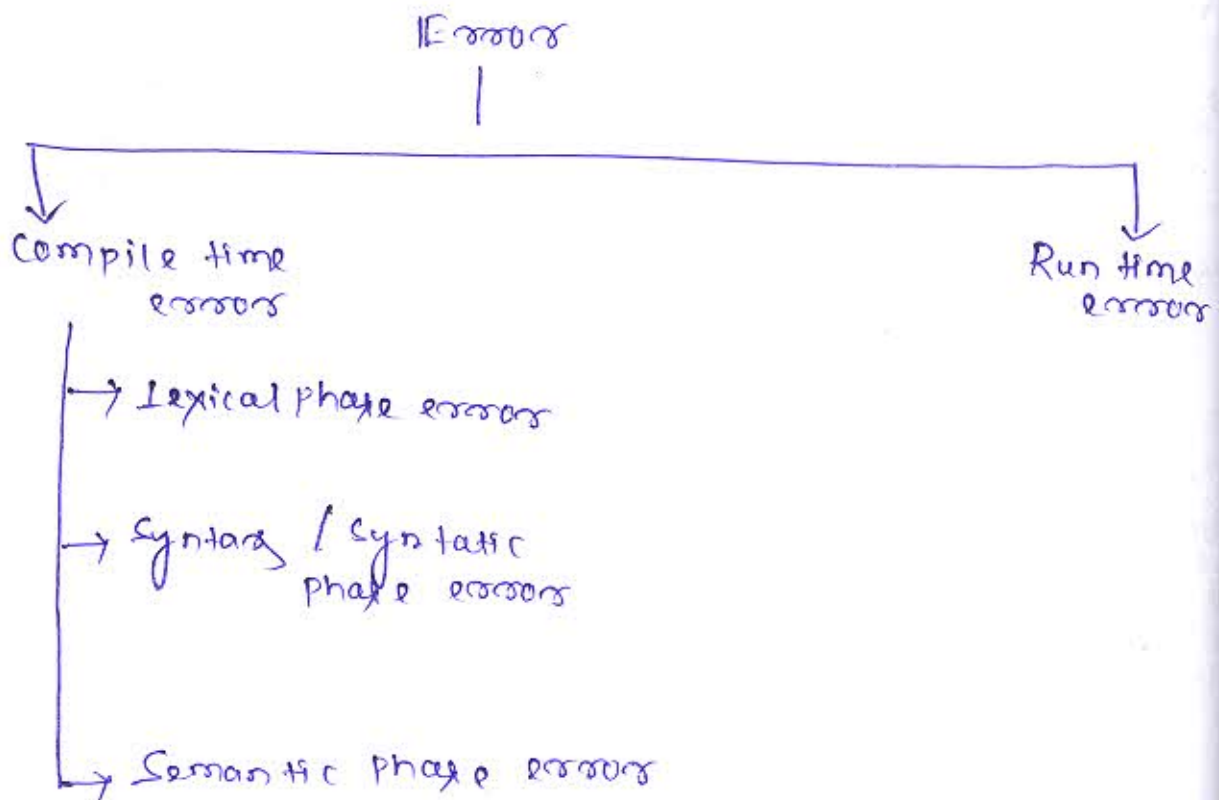 Error
Compile time
error
Run time
error
Lexical phase error
Syntax / Syntatic
phase error
Semantic phase error